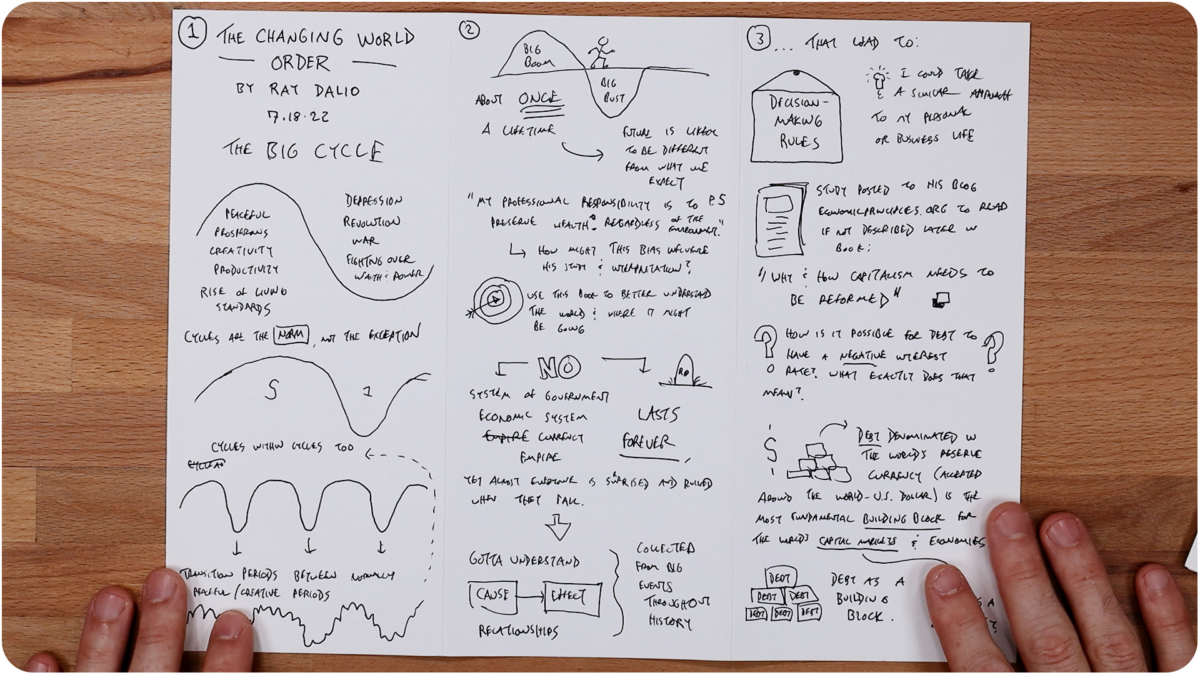 1
THE CHANGING WORLD
ORDER
BY RAY DALIO
7.18.22
THE BIG CYCLE
PEACEFUL
PROSPEROUS
CREATIVITY
PRODUCTIVITY
RISE OF LIVING
STANDARDS
DEPRESSION
REVOLUTION
WAR
FIGHTING OVER
WEALTH & POWER
CYCLES ARE THE NORM, NOT THE EXCEPTION
CYCLES WITHIN CYCLES TOO
CYCLES
TRANSITION PERIODS BETWEEN NORMALLY
PEACEFUL/CREATIVE PERIODS
2
BIG
BOOM
BIG
BUST
ABOUT ONCE
A LIFETIME
FUTURE IS LIKELY
TO BE DIFFERENT
FROM WHAT WE
EXPECT
"MY PROFESSIONAL RESPONSIBILITY IS TO P.5
PRESERVE WEALTH REGARDLESS OF THE
ENVIRONMENT."
HOW MIGHT THIS BIAS INFLUENCE
HIS STUDY & INTERPRETATION?
USE THIS BOOK TO BETTER UNDERSTAND
THE WORLD & WHERE IT MIGHT
BE GOING
NO
RIP
SYSTEM OF GOVERNMENT
ECONOMIC SYSTEM
EMPIRE CURRENCY
EMPIRE
LASTS
FOREVER
YET ALMOST EVERYONE IS SURPRISED AND RUINED
WHEN THEY FALL.
GOTTA UNDERSTAND
CAUSE
EFFECT
RELATIONSHIPS
COLLECTED
FROM BIG
EVENTS
THROUGHOUT
HISTORY
3
... THAT LEAD TO:
DECISION-
MAKING
RULES
I COULD TAKE
A SIMILAR APPROACH
TO MY PERSONAL
OR BUSINESS LIFE
STUDY POSTED TO HIS BLOG
ECONOMICPRINCIPLES.ORG TO READ
IF NOT DESCRIBED LATER IN
BOOK:
"WHY & HOW CAPITALISM NEEDS TO
BE REFORMED"
? HOW IS IT POSSIBLE FOR DEBT TO ?
HAVE A NEGATIVE INTEREST
RATE? WHAT EXACTLY DOES THAT
MEAN?
$
DEBT DENOMINATED IN
THE WORLD'S RESERVE
CURRENCY (ACCEPTED
AROUND THE WORLD - U.S. DOLLAR) IS THE
MOST FUNDAMENTAL BUILDING BLOCK FOR
THE WORLD'S CAPITAL MARKETS & ECONOMIES
DEBT
DEBT DEBT
DEBT DEBT DEBT
DEBT AS A
BUILDING
BLOCK.